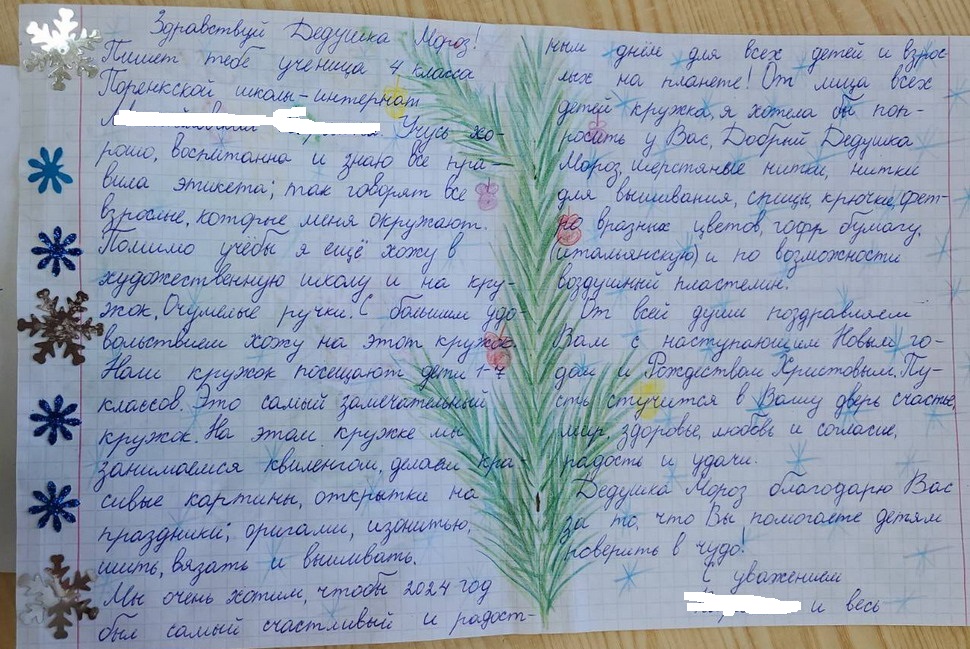 Здравствуй Дедушка Мороз!
Пишет тебе ученица 4 класса
Поренкской школы-интернат
Учусь хо-
рошо, воспитанна и знаю все пра-
вила этикета; так говорят все
взрослые, которые меня окружают.
Помимо учёбы я ещё хожу в
художественную школу и на кру-
жок "Очумелые ручки". С большим удо-
вольствием хожу на этот кружок.
Наш кружок посещают дети 1-7
классов. Это самый замечательный
кружок. На этом кружке мы
занимаемся квиленгом, делаем кра-
сивые картины, открытки на
праздники; оригами, изонитью,
шить, вязать и вышивать.
Мы очень хотим, чтобы 2024 год
был самый счастливый и радост-
ным днём для всех детей и взрос-
лых на планете! От лица всех
детей кружка, я хотела бы поп-
росить у Вас, Добрый Дедушка
Мороз, шерстяные нитки, нитки
для вышивания, спицы, крючки, фет-
ра вразных цветов, гофр бумагу,
(итальянскую) и по возможности
воздушный пластелин.
От всей души поздравляем
Вам с наступающим Новым го-
дом и Рождеством Христовым. Пу-
сть стучится в Вашу дверь счастье,
мир, здоровье, любовь и согласие,
радость и удачи.
Дедушка Мороз благодарю Вас
за то, что Вы помогаете детям
поверить в чудо!
С уважением
и весь